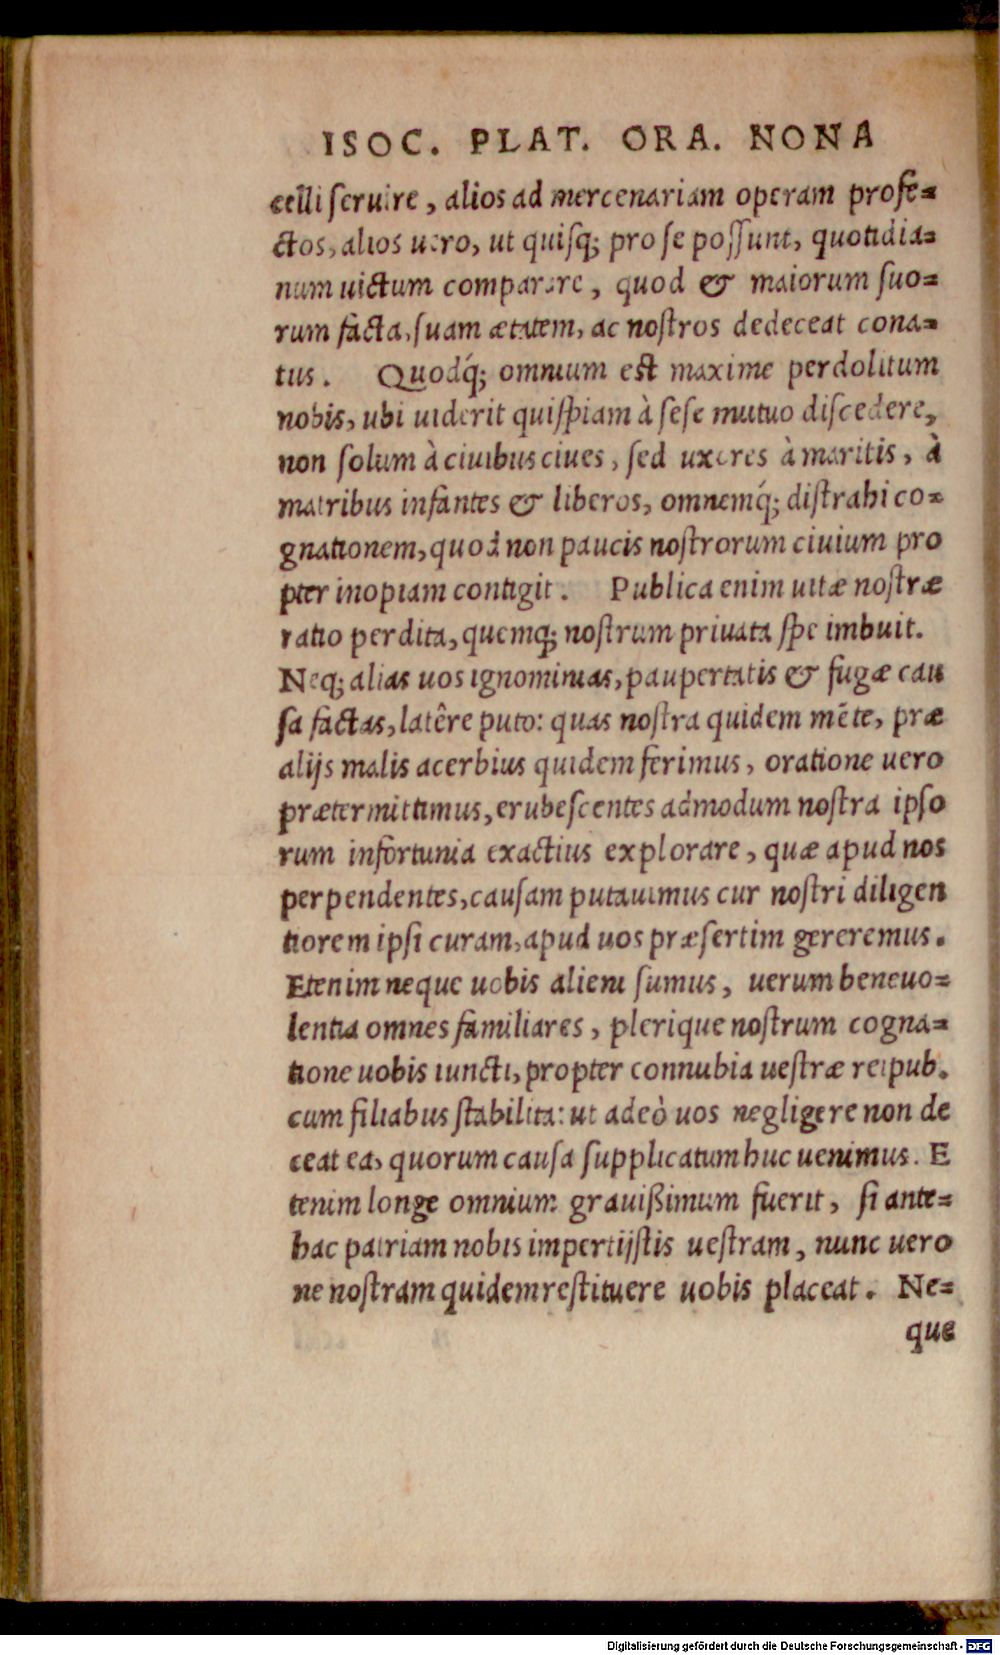 ISOC. PLAT. ORA. NONA
celli seruire, alios ad mercenariam operam profe=
ctos, alios uero, ut quisq; pro se possunt, quotidia=
num uictum comparare, quod & maiorum suo=
rum facta, suam ætatem, ac nostros dedeceat cona=
tus. Quodq́; omnium est maxime perdolitum
nobis, ubi uiderit quispiam à sese mutuo discedere,
non solum à ciuibus ciues, sed uxores à maritis, à
matribus infantes & liberos, omnemq́; distrahi co=
gnationem, quod non paucis nostrorum ciuium pro
pter inopiam contigit. Publica enim uitæ nostræ
ratio perdita, quemq; nostrum priuata spe imbuit.
Neq; alias uos ignominias, paupertatis & fugæ cau
sa factas, latêre puto: quas nostra quidem mẽte, præ
alijs malis acerbius quidem ferimus, oratione uero
prætermittimus, erubescentes admodum nostra ipso
rum infortunia exactius explorare, quæ apud nos
perpendentes, causam putauimus cur nostri diligen
tiorem ipsi curam, apud uos præsertim gereremus.
Etenim neque uobis alieni sumus, uerum beneuo=
lentia omnes familiares, plerique nostrum cogna=
tione uobis iuncti, propter connubia uestræ reipub.
cum filiabus stabilita: ut adeò uos negligere non de
ceat ea, quorum causa supplicatum huc uenimus. E
tenim longe omnium grauißimum fuerit, si ante=
hac patriam nobis impertijstis uestram, nunc uero
ne nostram quidem restituere uobis placeat. Ne=
que
Digitalisierung gefördert durch die Deutsche Forschungsgemeinschaft - DFG